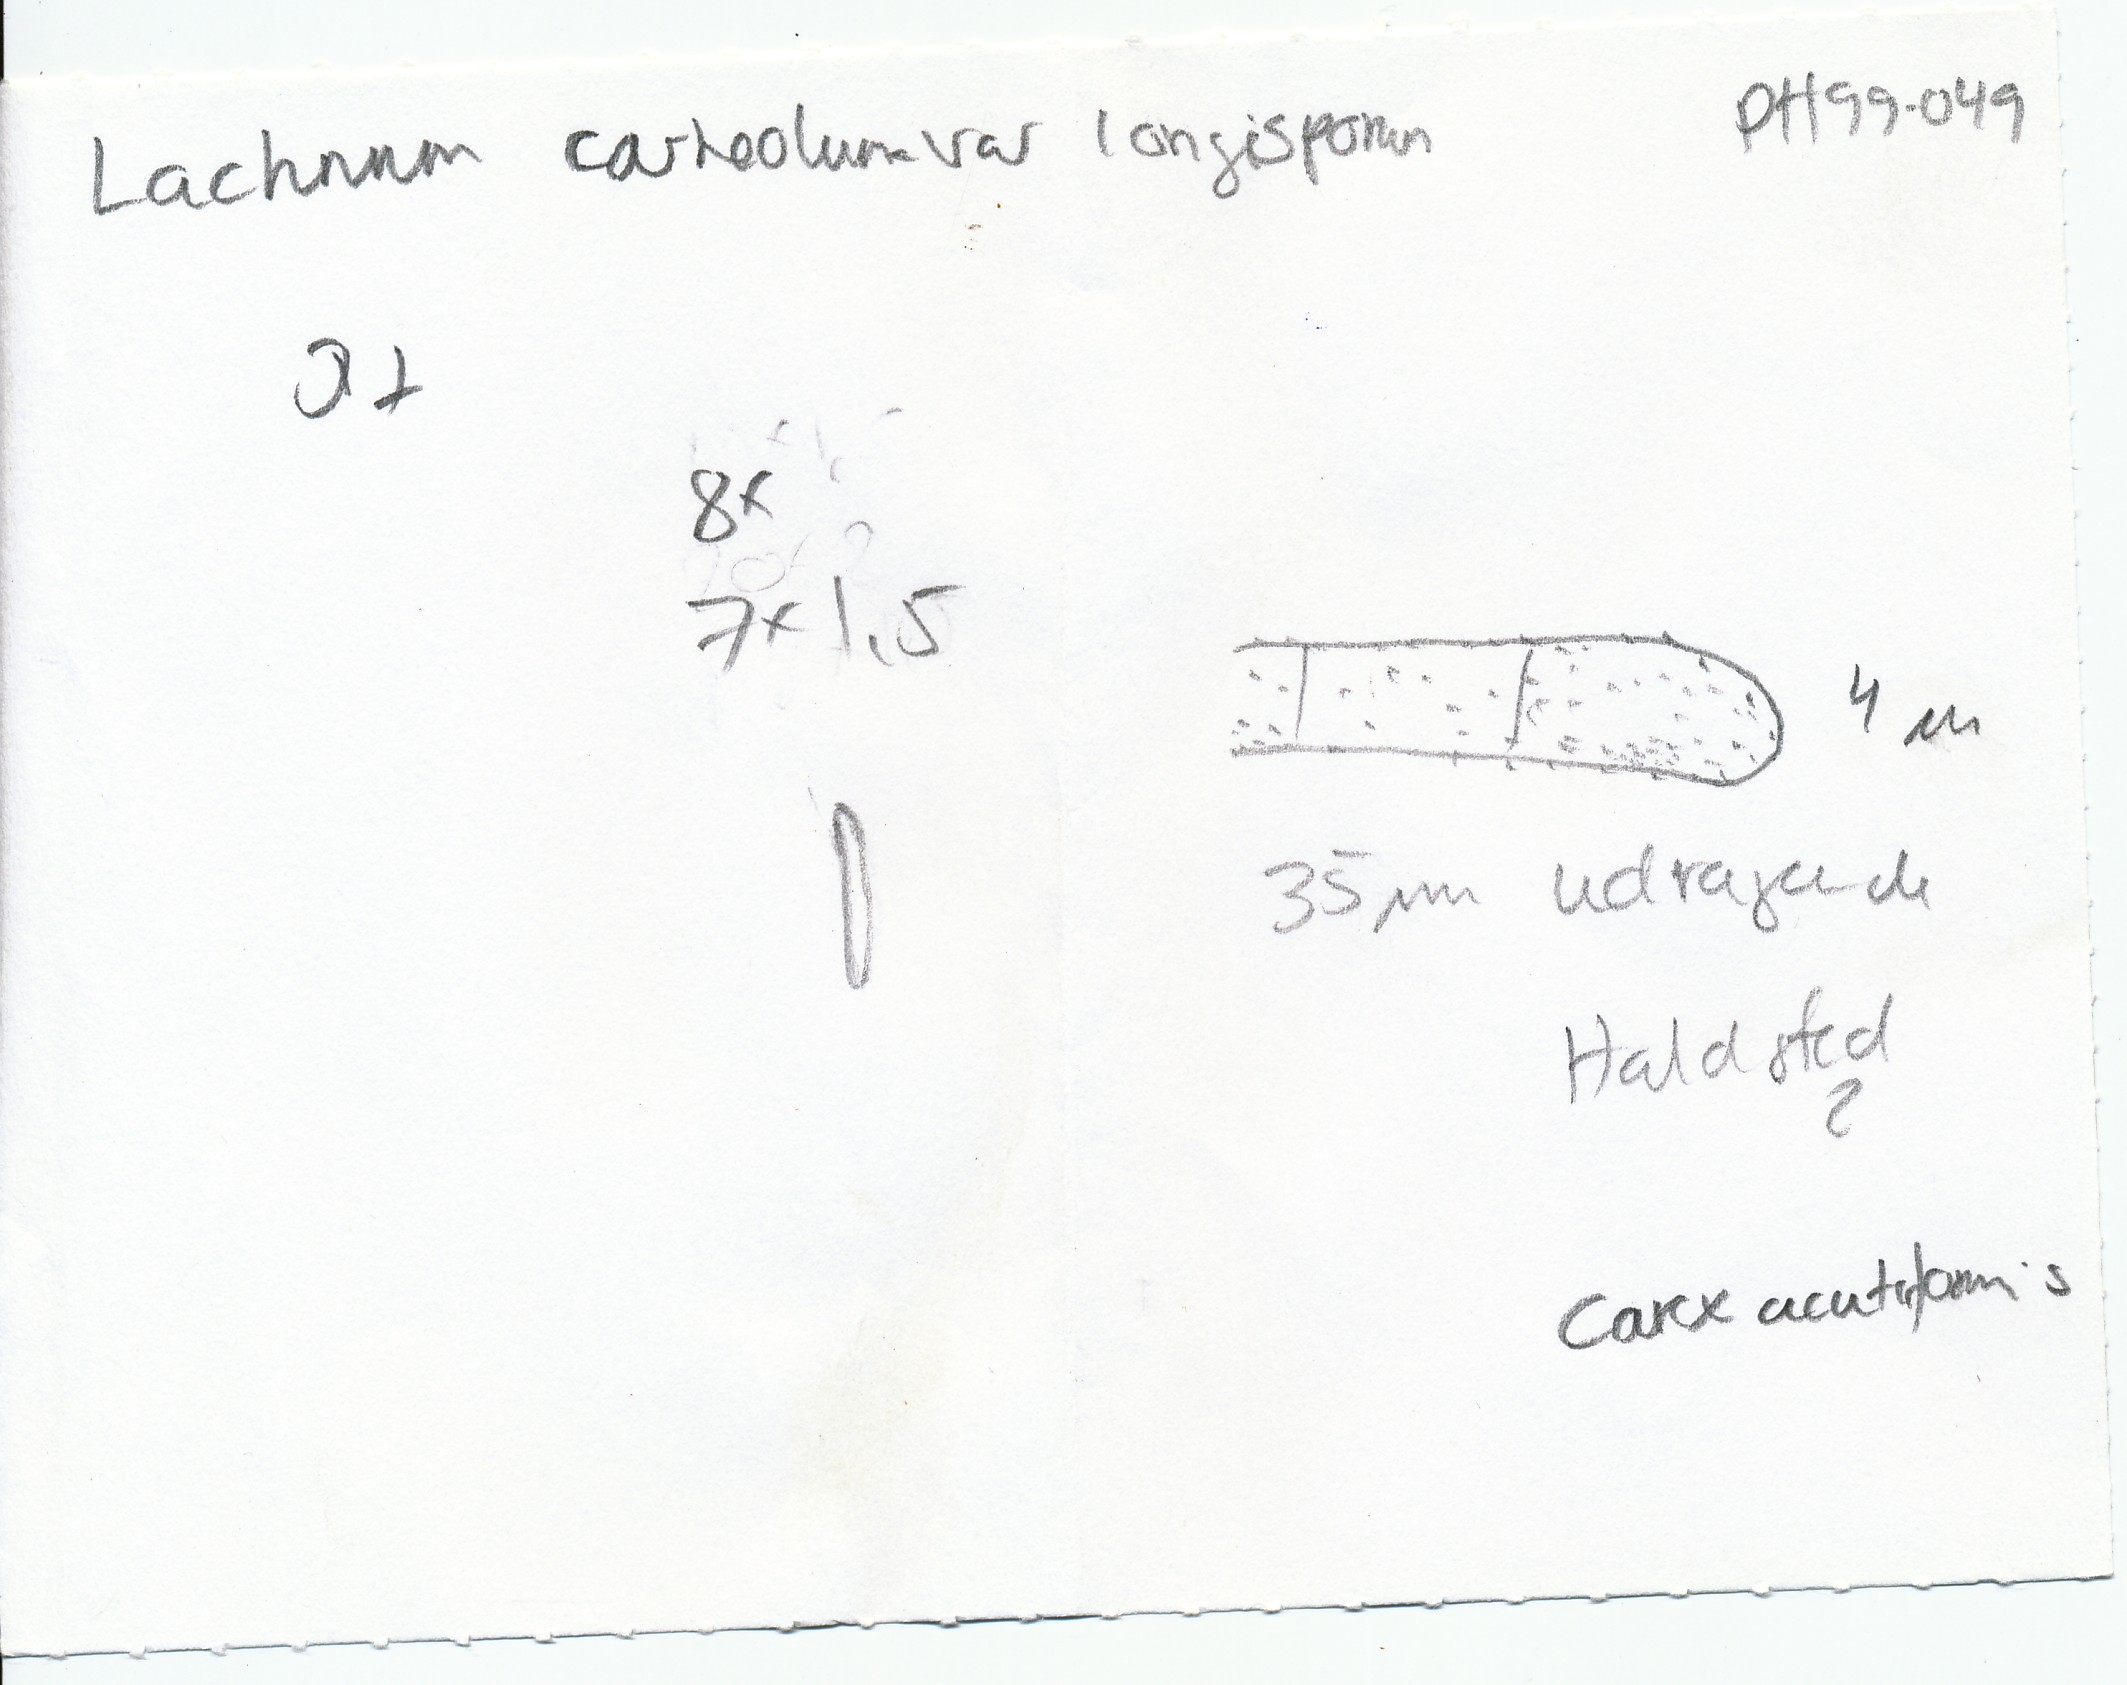 Lachnum carneolum var longisporum
PH99-049
J+
8x
7x1,5
4 µm
35 µm udragende
Hald sted
?
Carex acutiformis